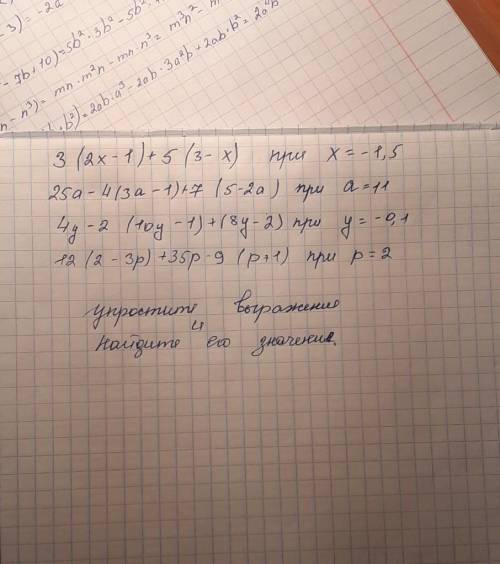 - 3) = -2a
- 7b + 10) = 5b² · 3b² - 5b² ·
n - n³) = mn · m²n - mn · n³ = m³n² -
b²) = 2ab · a³ - 2ab · 3a²b + 2ab · b² = 2a⁴b
3 (2x - 1) + 5 (3 - x) при x = -1,5
25a - 4(3a - 1) + 7 (5 - 2a) при a = 11
4y - 2 (10y - 1) + (8y - 2) при y = -0,1
12 (2 - 3p) + 35p - 9 (p + 1) при p = 2
упростите выражение
и
найдите его значение.